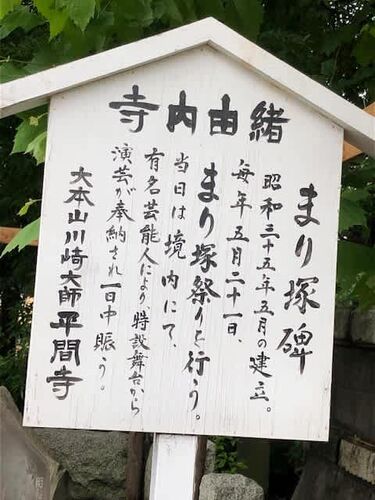 寺内由緒
まり塚碑
昭和三十五年五月の建立。
毎年五月二十一日、
まり塚祭りを行う。
当日は境内にて、
有名芸能人により、特設舞台から
演芸が奉納され一日中賑う。
大本山川崎大師平間寺